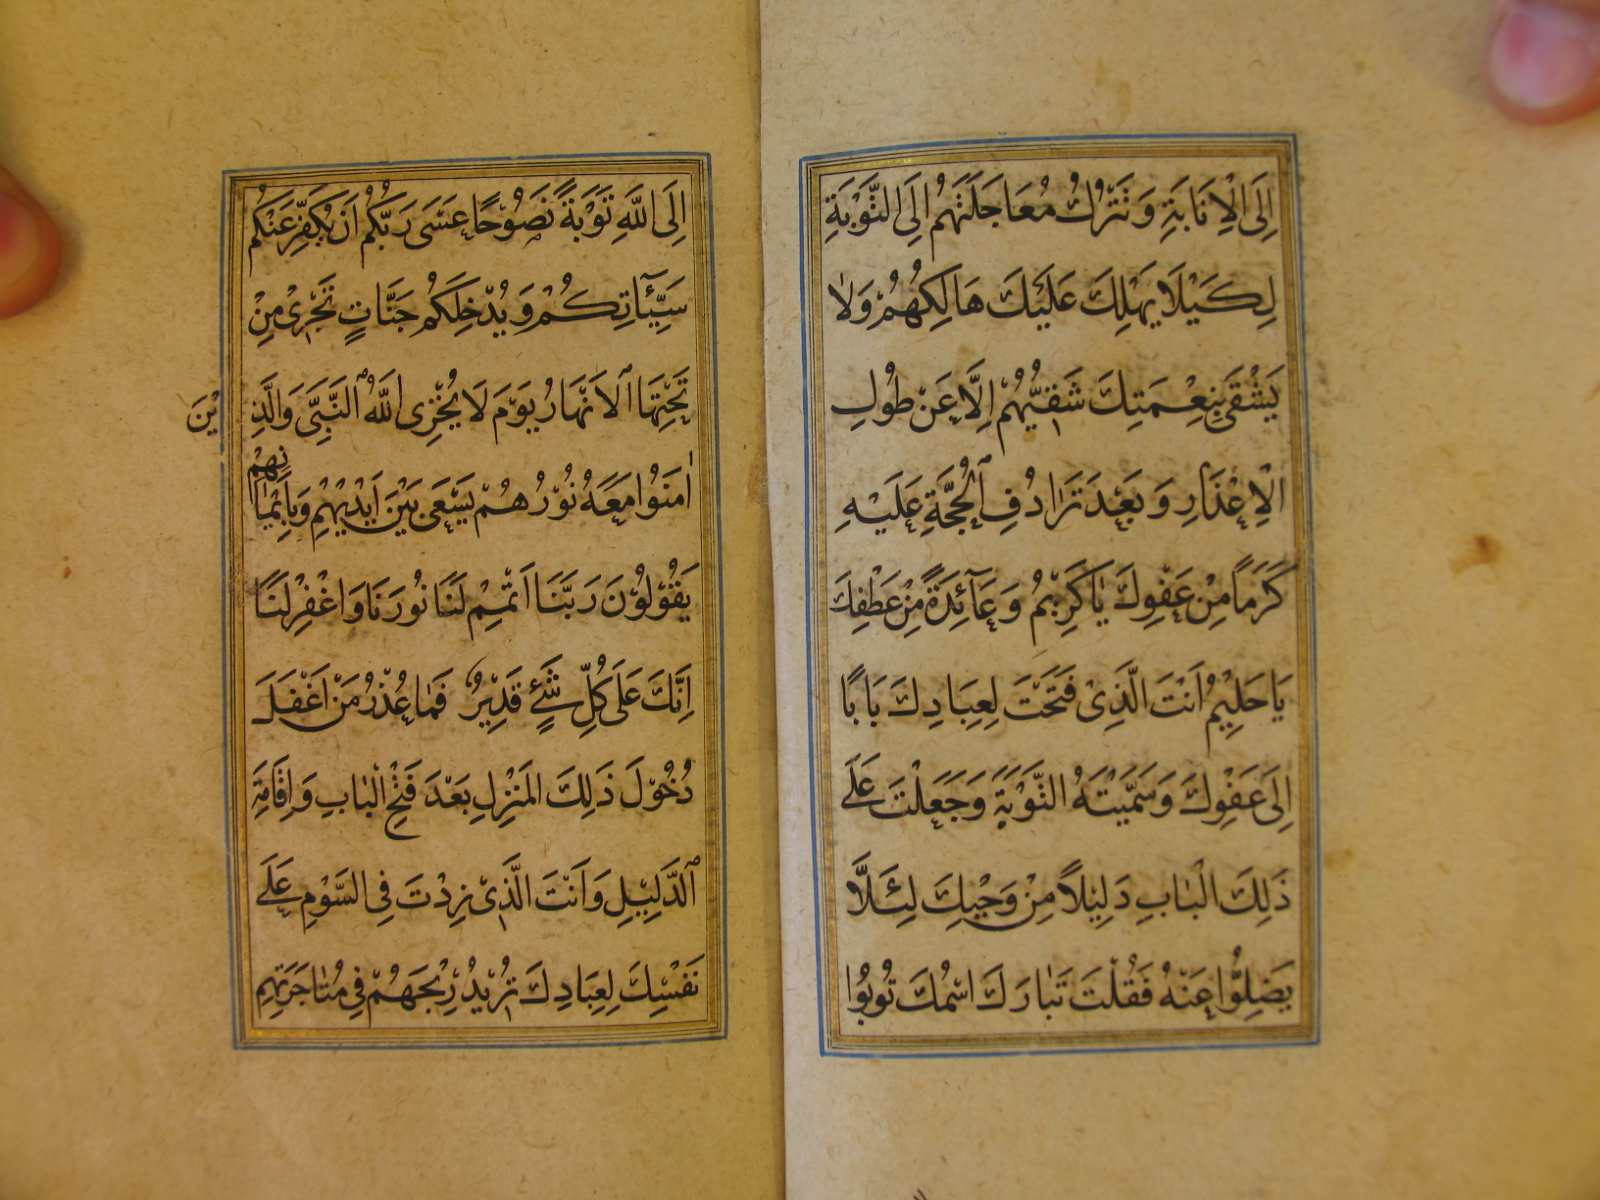 اِلَى الْاِنَابَةِ وَ تَتْرُكُ مُعَاجَلَتَهُمْ اِلَى التَّوْبَةِ
لِكَيْلَا يَهْلِكَ عَلَيْكَ هَالِكُهُمْ وَلَا
يَشْقَى بِنِعْمَتِكَ شَقِيُّهُمْ اِلَّا عَنْ طُولِ
الْاِعْذَارِ وَ بَعْدَ تَرَادُفِ الْحُجَّةِ عَلَيْهِ
كَرَمًا مِنْ عَفْوِكَ يَا كَرِيْمُ وَ عَآئِدَةً مِنْ عَطْفِكَ
يَا حَلِيْمُ اَنْتَ الَّذِىْ فَتَحْتَ لِعِبَادِكَ بَابًا
اِلَى عَفْوِكَ وَ سَمَّيْتَهُ التَّوْبَةَ وَ جَعَلْتَ عَلَى
ذَلِكَ الْبَابِ دَلِيْلًا مِنْ وَحْيِكَ لِئَلَّا
يَضِلُّوا عَنْهُ فَقُلْتَ تَبَارَكَ اسْمُكَ تُوبُوا
اِلَى اللّٰهِ تَوْبَةً نَصُوْحًا عَسَى رَبُّكُمْ اَنْ يُكَفِّرَ عَنْكُمْ
سَيِّئَاتِكُمْ وَ يُدْخِلَكُمْ جَنَّاتٍ تَجْرِىْ مِنْ
تَحْتِهَا الْاَنْهَارُ يَوْمَ لَا يُخْزِى اللّٰهُ النَّبِىَّ وَالَّذِيْنَ
اٰمَنُوا مَعَهُ نُوْرُهُمْ يَسْعَى بَيْنَ اَيْدِيْهِمْ وَ بِاَيْمَانِهِمْ
يَقُوْلُوْنَ رَبَّنَا اَتْمِمْ لَنَا نُورَنَا وَاغْفِرْ لَنَا
اِنَّكَ عَلَى كُلِّ شَىْءٍ قَدِيْرٌ فَمَا عُذْرُ مَنْ اَغْفَلَ
دُخُوْلَ ذَلِكَ الْمَنْزِلِ بَعْدَ فَتْحِ الْبَابِ وَ اِقَامَةِ
الدَّلِيْلِ وَ اَنْتَ الَّذِىْ زِدْتَ فِى السَّوْمِ عَلَى
نَفْسِكَ لِعِبَادِكَ تُرِيْدُ رِبْحَهُمْ فِى مُتَاجَرَتِهِمْ